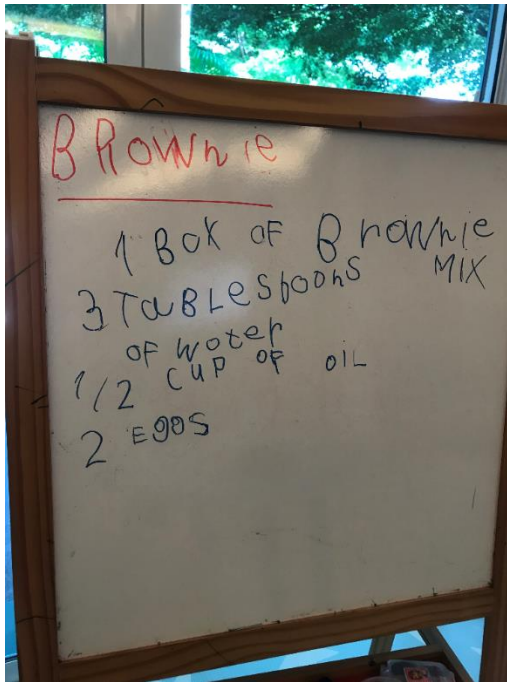 BROWNIE
1 BOX OF BROWNIE
MIX
3 TaBLESpOONS
OF WATER
1/2 CUP OF OIL
2 EGGS